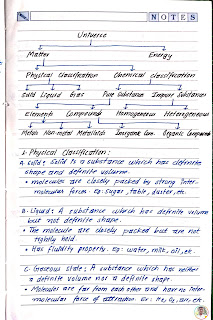 NOTES
Universe
Matter Energy
Physical Classification Chemical classification
Solid Liquid Gas Pure Substance Impure Substance
Element Compound Homogeneous Heterogeneous
Metals Non-metal Metalloids Inorganic Com. Organic Compound
1- Physical Classification:
A. Solid: Solid is a substance which has definite
shape and definite volume.
• molecules are closely packed by strong Inter-
molecular forces Eg: Sugar, table, duster, etc.
B- Liquid: A substance which has definite volume
but not definite shape.
• The molecule are closely packed but are not
tightly held
• Has fluidity property. Eg: water, milk, oil, etc.
C- Gaseous state: A substance which has neither
a definite volume nor a definite shape.
• Molecules are far from each other and have no Inter-
molecular force of attraction. Ex: He, O2, air, etc.